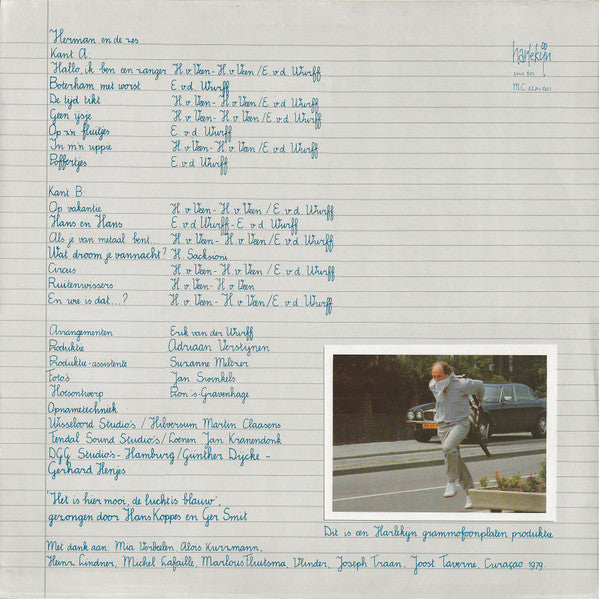 Herman en de zes
Kant A:
Hallo, ik ben een zanger H. v. Veen - H. v. Veen / E. v. d. Wurff
Boterham met worst E. v. d. Wurff
De tijd tikt H. v. Veen - H. v. Veen / E. v. d. Wurff
Geen ijsje H. v. Veen - H. v. Veen / E. v. d. Wurff
Op z'n fluitjes E. v. d. Wurff
In m'n uppie H. v. Veen - H. v. Veen / E. v. d. Wurff
Poffertjes E. v. d. Wurff
Kant B:
Op vakantie H. v. Veen - H. v. Veen / E. v. d. Wurff
Hans en Hans E. v. d. Wurff - E. v. d. Wurff
Als je van metaal bent H. v. Veen - H. v. Veen / E. v. d. Wurff
Wat droom je vannacht? H. Sacksioni
Circus H. v. Veen - H. v. Veen / E. v. d. Wurff
Ruitenwissers H. v. Veen - H. v. Veen
En wie is dat...? H. v. Veen - H. v. Veen / E. v. d. Wurff
Arrangementen Erik van der Wurff
Produktie Adriaan Verstijnen
Produktie-assistente Suzanne Melzer
Foto's Jan Swinkels
Hoesontwerp Ron 's-Gravenhage
Opnametechniek
Wisseloord Studio's / Hilversum Martin Claasens
Fendal Sound Studio's / Loenen Jan Kranendonk
DGG Studio's - Hamburg / Günther Dijcke -
Gerhard Henjes
'Het is hier mooi, de lucht is blauw',
gezongen door Hans Koppes en Ger Smit
Met dank aan: Mia Verbeelen Alois Kurzmann,
Heinz Lindner, Michel Lafaille, Marlous Fluitsma, Vlinder, Joseph Traan, Joost Taverne, Curaçao 1979.
harlekijn
MC
Dit is een Harlekijn grammofoonplaten produktie